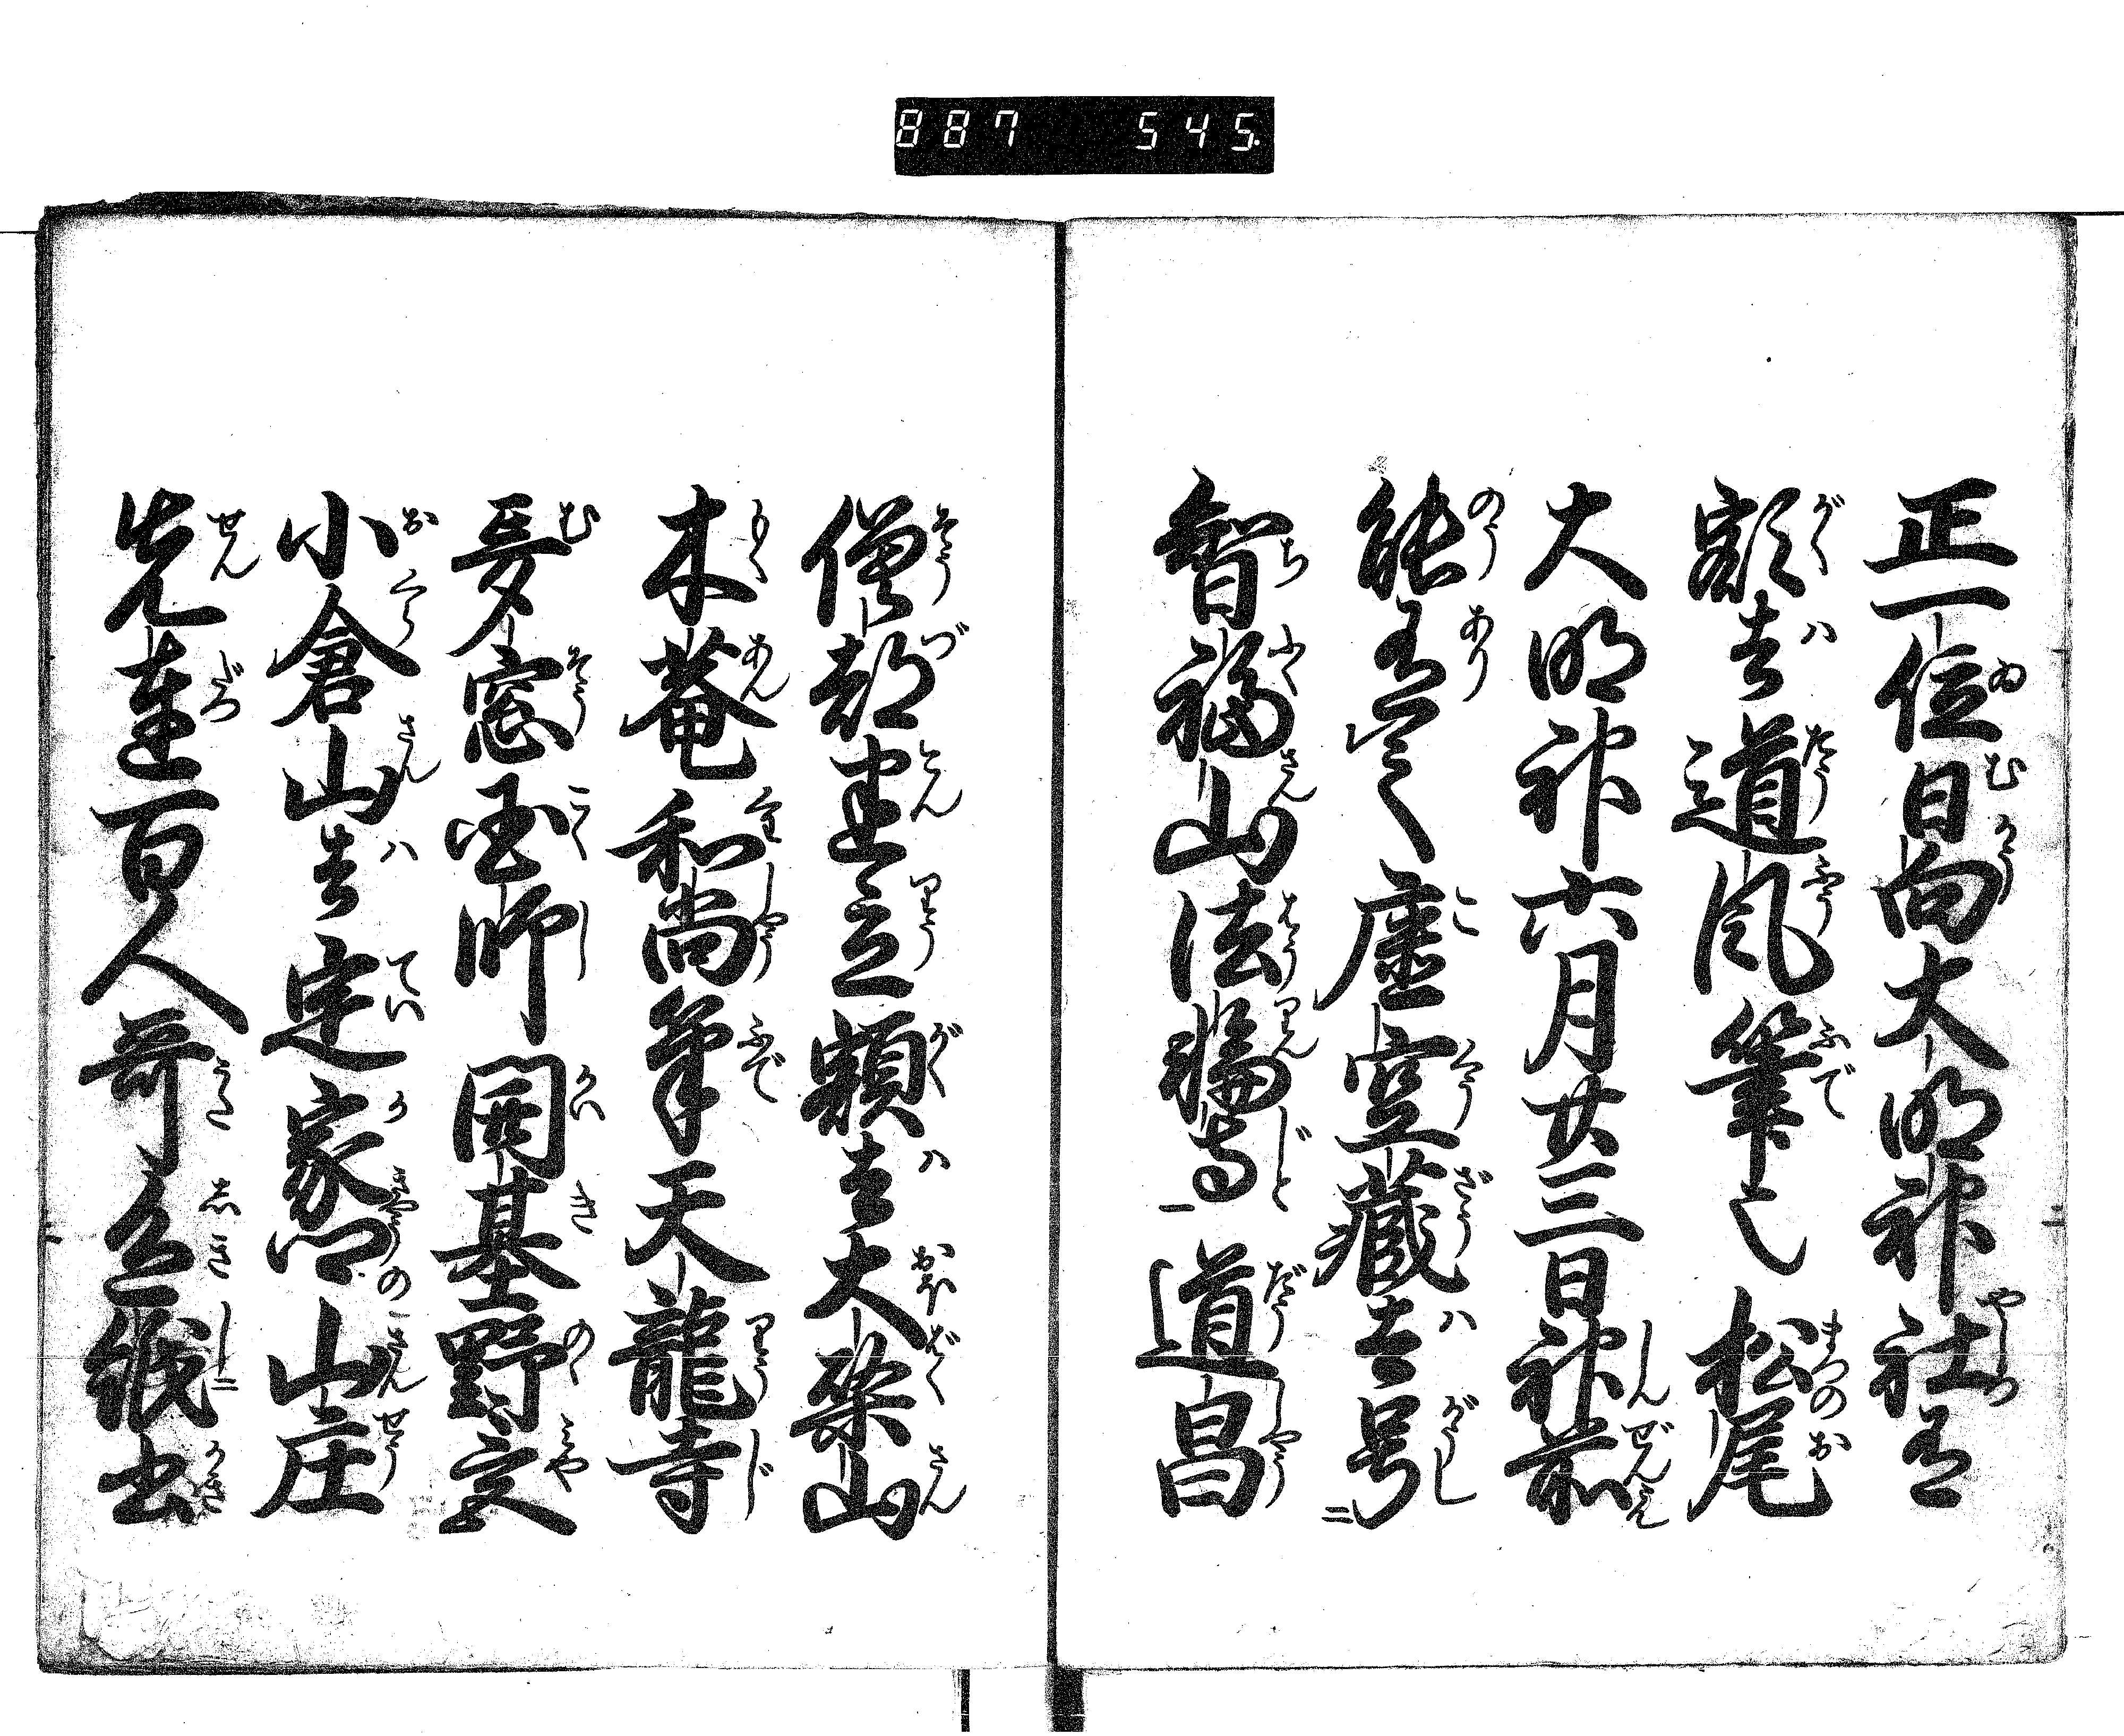 887 545
正一位日向大明神社有
額者道風筆也松尾
大明神六月廿三日神前
能有之虚空蔵者号
智福山法輪寺道昌
僧都建立額者大檗山
木菴和尚筆天龍寺
夢窓国師開基野宮
小倉山者定家卿山庄
先達百人哥色紙書